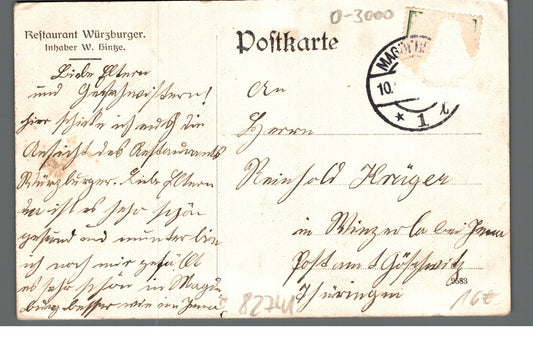 Restaurant Würzburger.
Inhaber W. Hintze.
Postkarte
0-3000
MAGDEBURG
10.
* 1 l
Liebe Eltern
und Geschwistern!
hier schicke ich euch die
Ansicht des Restaurants
Würzburger. Liebe Eltern
da ist es sehr schön
gesund und munter bin
ich noch mir gefällt
es sehr schön in Magde
burg besser wie in Jena
An
Herrn
Reinhold Krüger
in Winzerla bei Jena
Post am t Göschwitz
Thüringen
9683
82741
16€